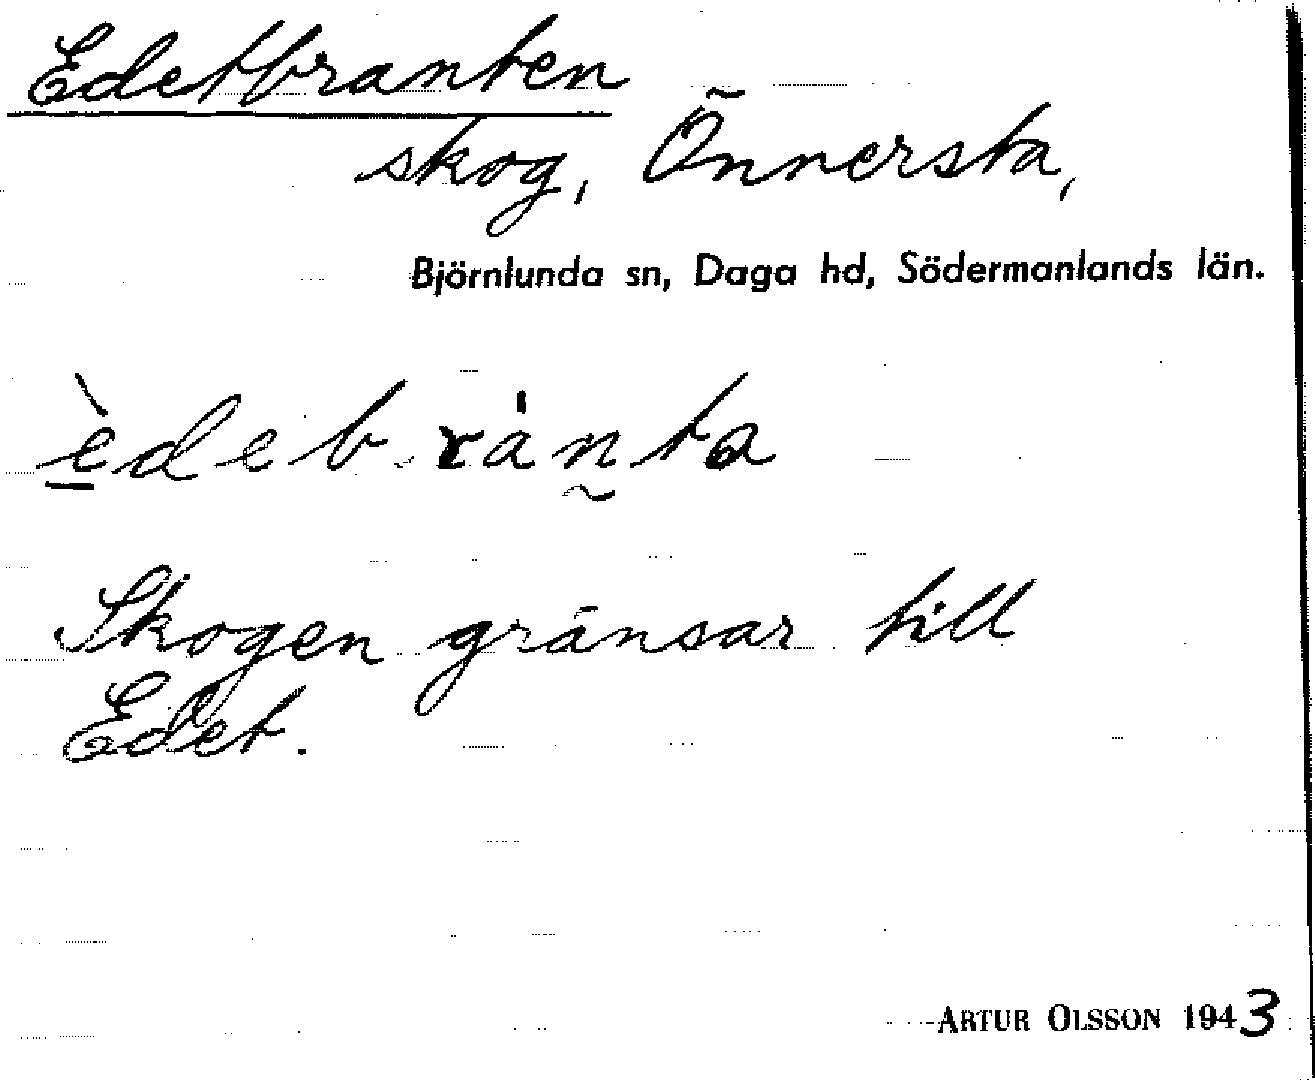 Edetbranten
skog, Önnersta,
Björnlunda sn, Daga hd, Södermanlands län.
èdebránta
Skogen gränsar till
Edet.
ARTUR OLSSON 1943